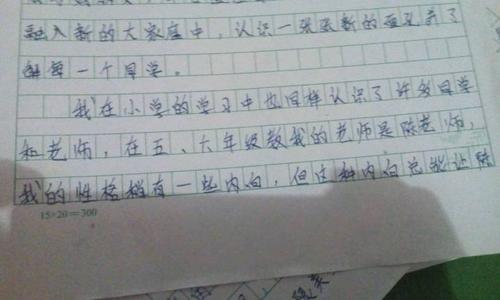 融入新的大家庭中，认识一张张新的面孔
每一个同学。
我在小学的学习中也同样认识了许多同学
和老师，在五、六年级教我的老师是陈老师，
我的性格稍有一些内向，但这种内向总能让陈
15×20=300